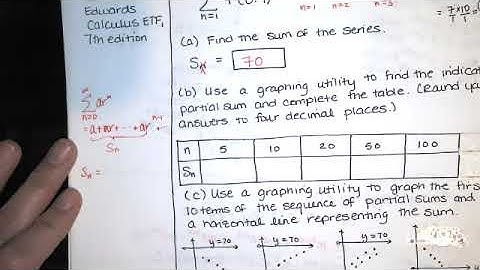 Edwards
Calculus ETF,
7th edition
∞
∑ arⁿ
n=0
= a+ar+···+arⁿ⁻¹
Sₙ
Sₙ =
n=1
n=1 n=2 n=3
= 7×10
1 1
(a) Find the sum of the series.
Sₙ = 70
(b) Use a graphing utility to find the indica
partial sum and complete the table. (Round yo
answers to four decimal places.)
n 5 10 20 50 100
Sₙ
(c) Use a graphing utility to graph the firs
10 terms of the sequence of partial sums and
a horizontal line representing the sum.
y=70 y=70 y=70